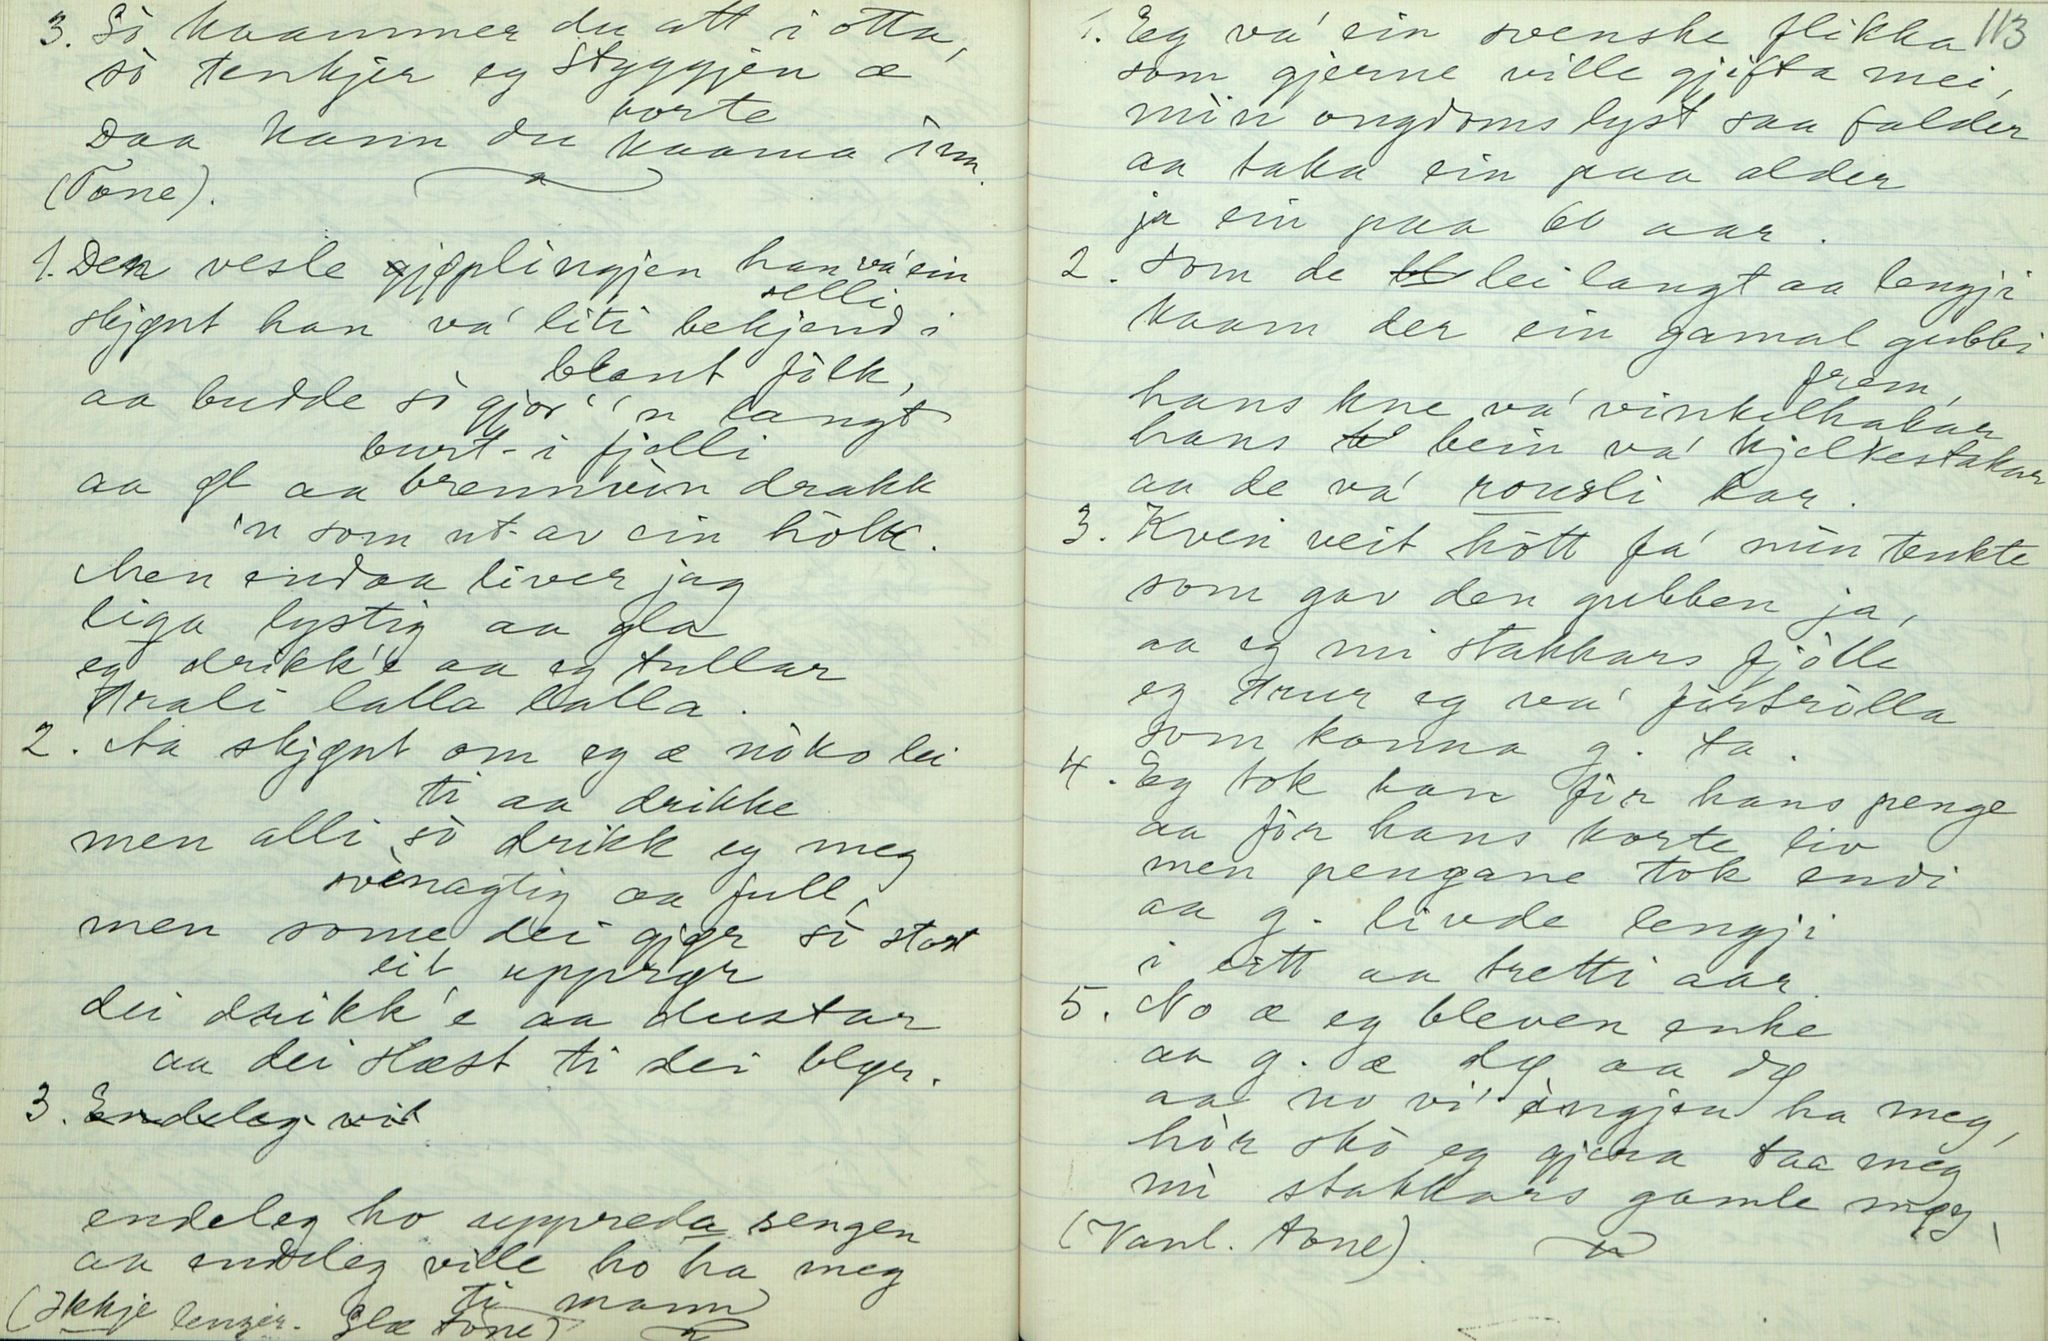 3. Sò kaammer du att i òtta,
sò tenkjer eg styggjen æ
borte
Daa kann du kaama inn.
(Tone).
1. Den vesle gjøplingjen han va' ein
selli
skjønt han va' liti bekjend i
blant fòlk,
aa budde sò gjor' 'n langt
burt-i fjelli
aa øl aa brennvin drakk
'n som ut-av ein hòlk.
Men endaa liver jag
liga lystig aa gla
eg drikk'e aa eg tullar
trali lalla lalla.
2. Aa skjønt om eg æ nòko lei
ti aa drikke
men alli sò drikk eg meg
svinagtig aa full,
men some dei gjør sò stort
eit upprør
dei drikk'e aa dustar
aa dei slæst ti dei blør.
3. Endeleg vil
endeleg ho uppreda sengen
aa endeleg ville ho ha meg
ti mann
(Ikkje lenger. Glæ tone)
113
1. Eg va' ein svenske flikka
som gjerne ville gjifta mei,
min ongdoms lyst saa falder
aa taka ein paa alder
ja ein paa 60 aar.
2. Som de lei langt aa lengji
kaam der ein gamal gubbi
frem,
hans kne va' vinkelhakar
hans bein va' kjelkestakar
aa de va' rousli kar.
3. Kven veit hòtt fa' min tenkte
som gav den gubben ja,
aa eg mi stakkars fjòlle
eg trur eg va' fòrtròlla
som konna g. ta.
4. Eg tok han fòr hans penge
aa fòr hans korte liv
men pengane tok endi
aa g. livde lengji
i eitt aa tretti aar.
5. No æ eg bleven enke
aa g. æ dø aa dø
aa no vi' ingjen ha meg,
hòr skò eg gjera taa meg
mi stakkars gamle møy.
(Vanl. tone).